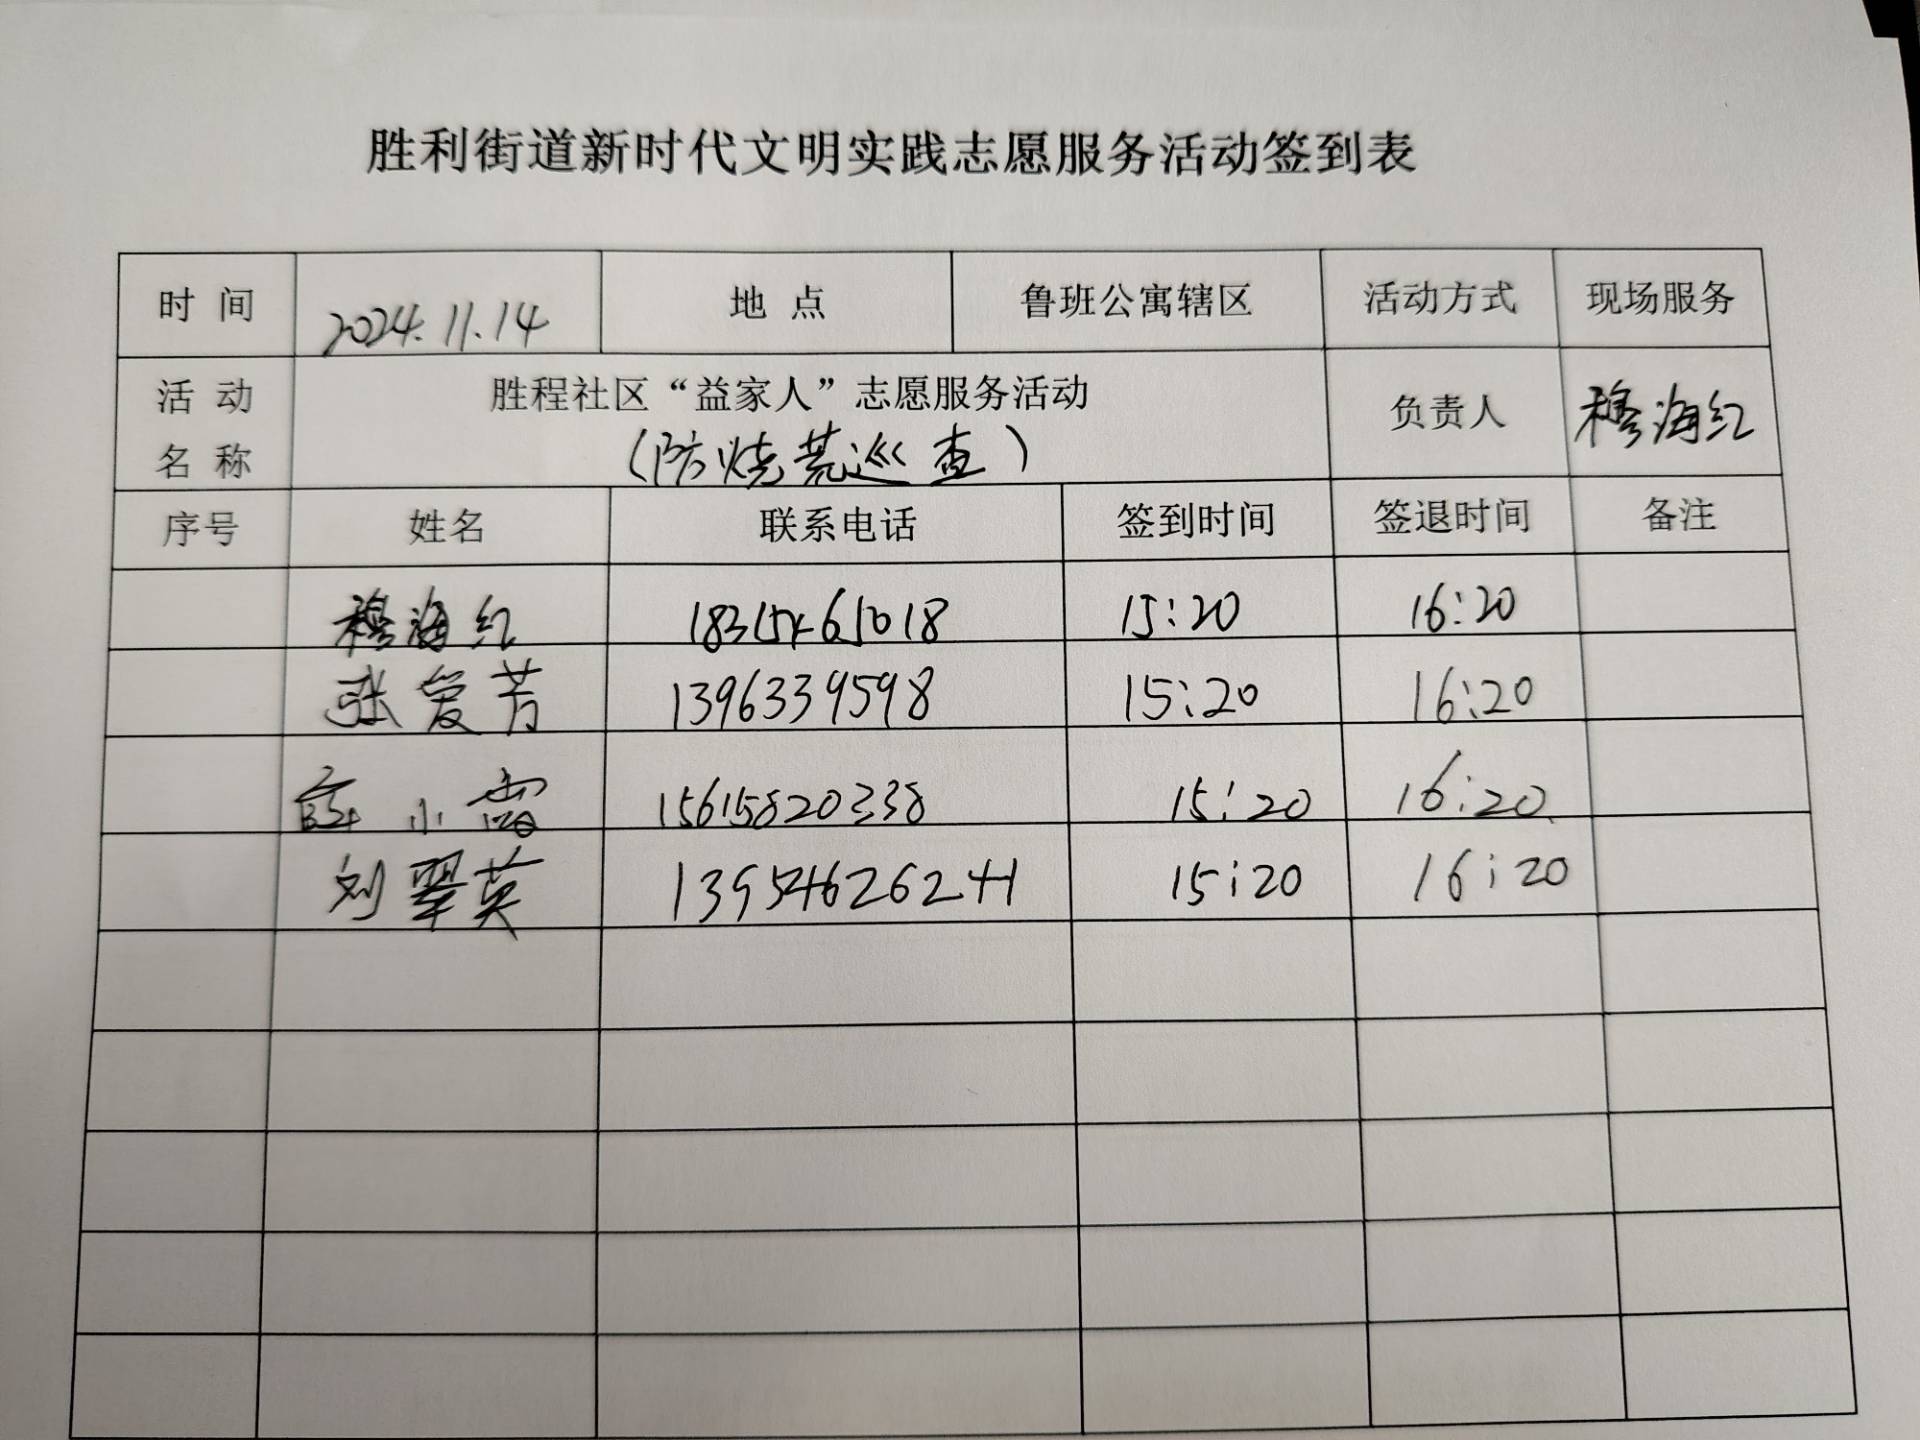 胜利街道新时代文明实践志愿服务活动签到表
时 间 2024.11.14 地 点 鲁班公寓辖区 活动方式 现场服务
活 动 名 称 胜程社区“益家人”志愿服务活动 负责人 穆海红
(防烧荒巡查)
序号 姓名 联系电话 签到时间 签退时间 备注
穆海红 18315461018 15:20 16:20
张爱芳 1396339598 15:20 16:20
薛小雷 15615820338 15:20 16:20
刘翠英 13954626241 15:20 16:20